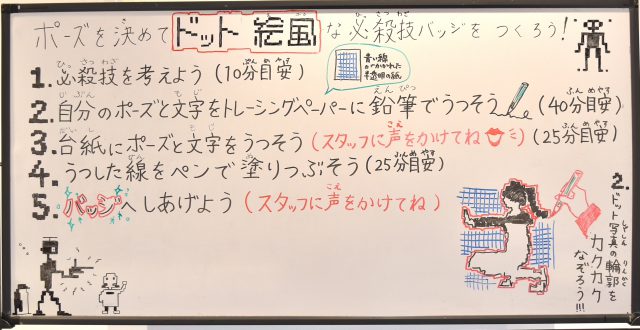 ポーズを決めてドット絵風な必殺技バッジをつくろう!
青い線がかかれた半透明の紙
1.必殺技を考えよう(10分目安)
2.自分のポーズと文字をトレーシングペーパーに鉛筆でうつそう(40分目安)
3.台紙にポーズと文字をうつそう(スタッフに声をかけてね)(25分目安)
4.うつした線をペンで塗りつぶそう(25分目安)
5.バッジへしあげよう(スタッフに声をかけてね)
2.ドット写真の輪郭を
カクカク
なぞろう!!!